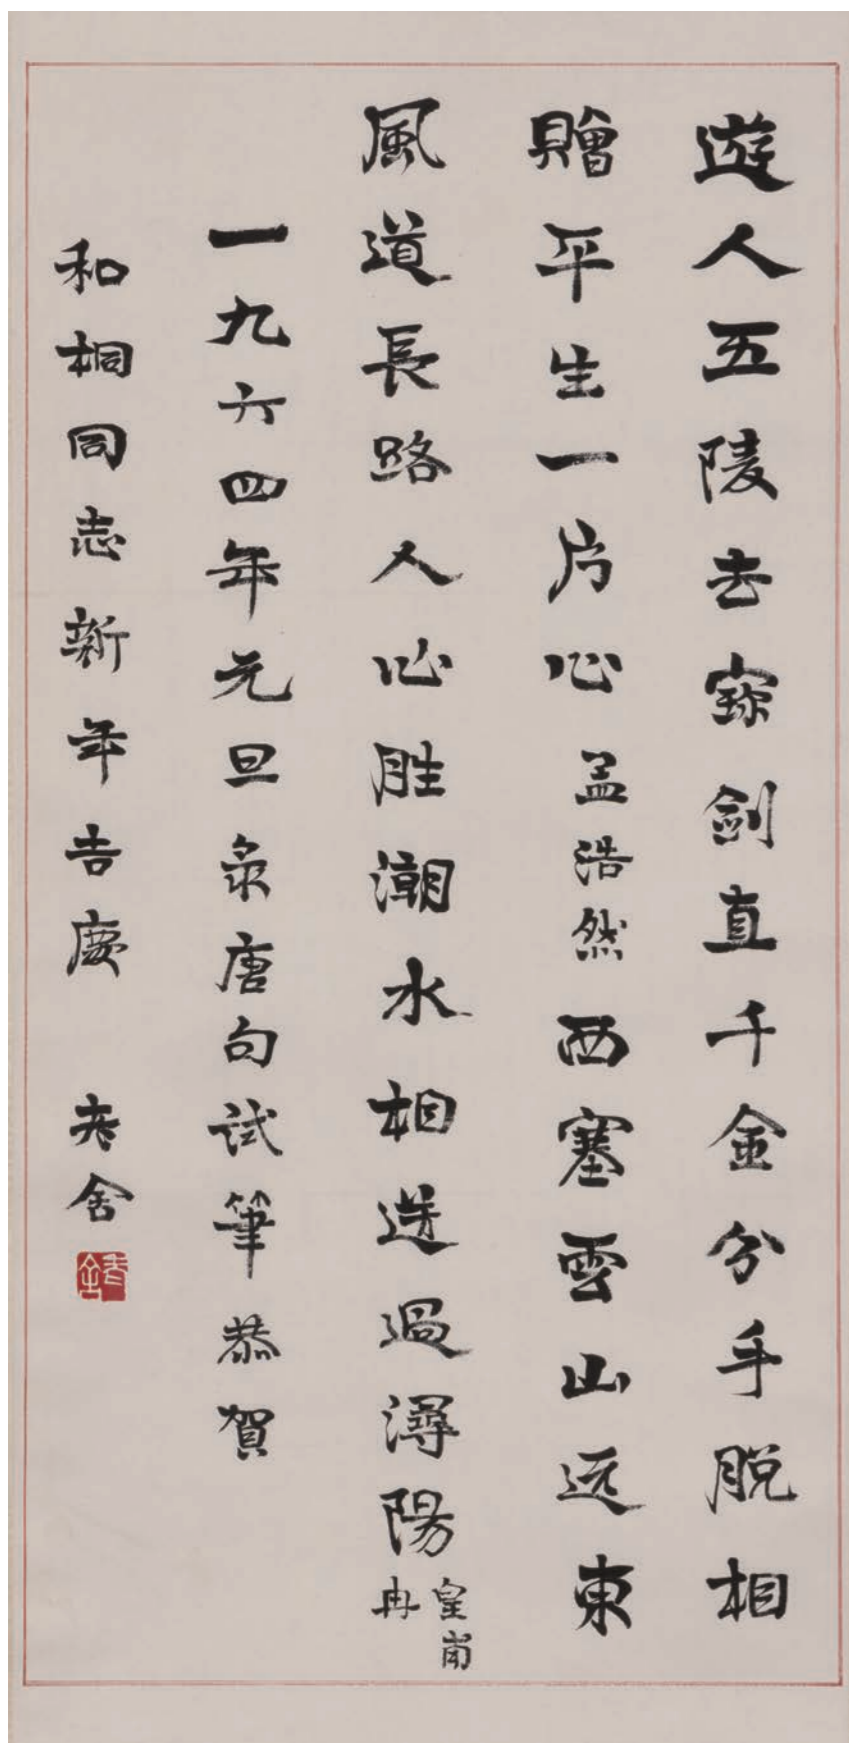 遊人五陵去寳劍直千金分手脫相
贈平生一片心孟浩然西塞雲山远東
風道長路人心胜潮水相送過潯陽皇甫冉
一九六四年元旦录唐句试筆恭賀
和桐同志新年吉慶 老舍
老舍